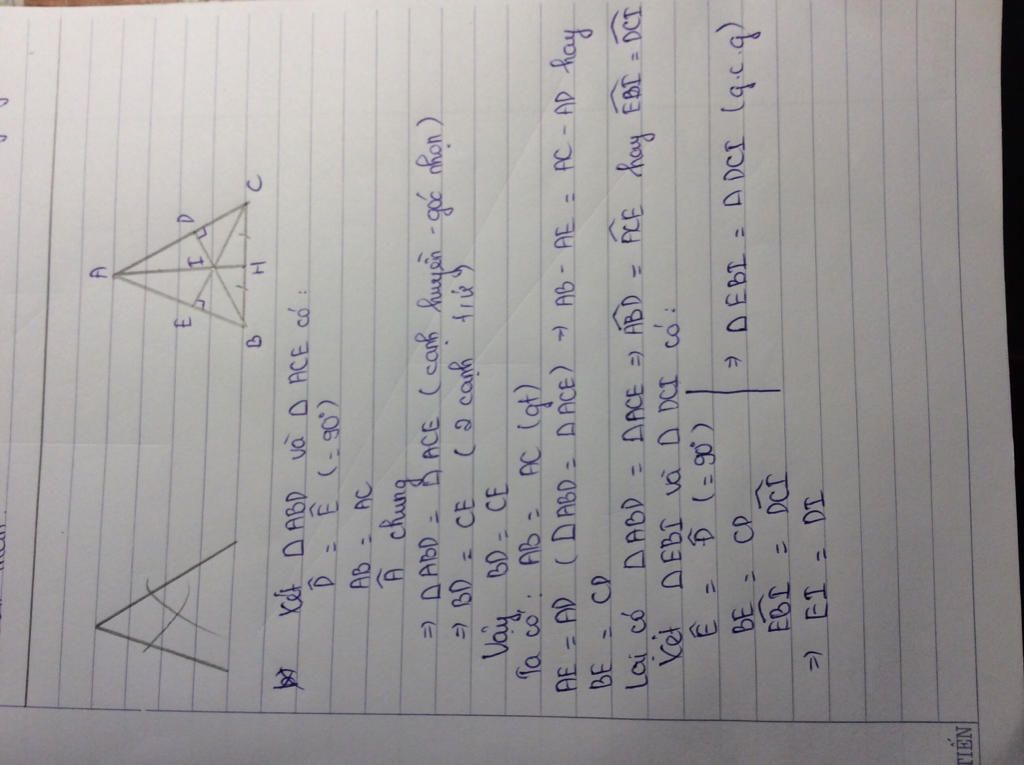 A
E
D
I
B
H
C
Xét ΔABD và ΔACE có:
D̂ = Ê (= 90°)
AB = AC
Â chung
=> ΔABD = ΔACE (cạnh huyền - góc nhọn)
=> BD = CE (2 cạnh t/ứ)
Vậy BD = CE
Ta có: AB = AC (gt)
AE = AD (ΔABD = ΔACE) => AB - AE = AC - AD hay
BE = CD
Lại có ΔABD = ΔACE => ABD̂ = ACÊ hay EBÎ = DCÎ
Xét ΔEBI và ΔDCI có:
Ê = D̂ (= 90°)
BE = CD
EBÎ = DCÎ
=> ΔEBI = ΔDCI (g.c.g)
=> EI = DI
TIẾN